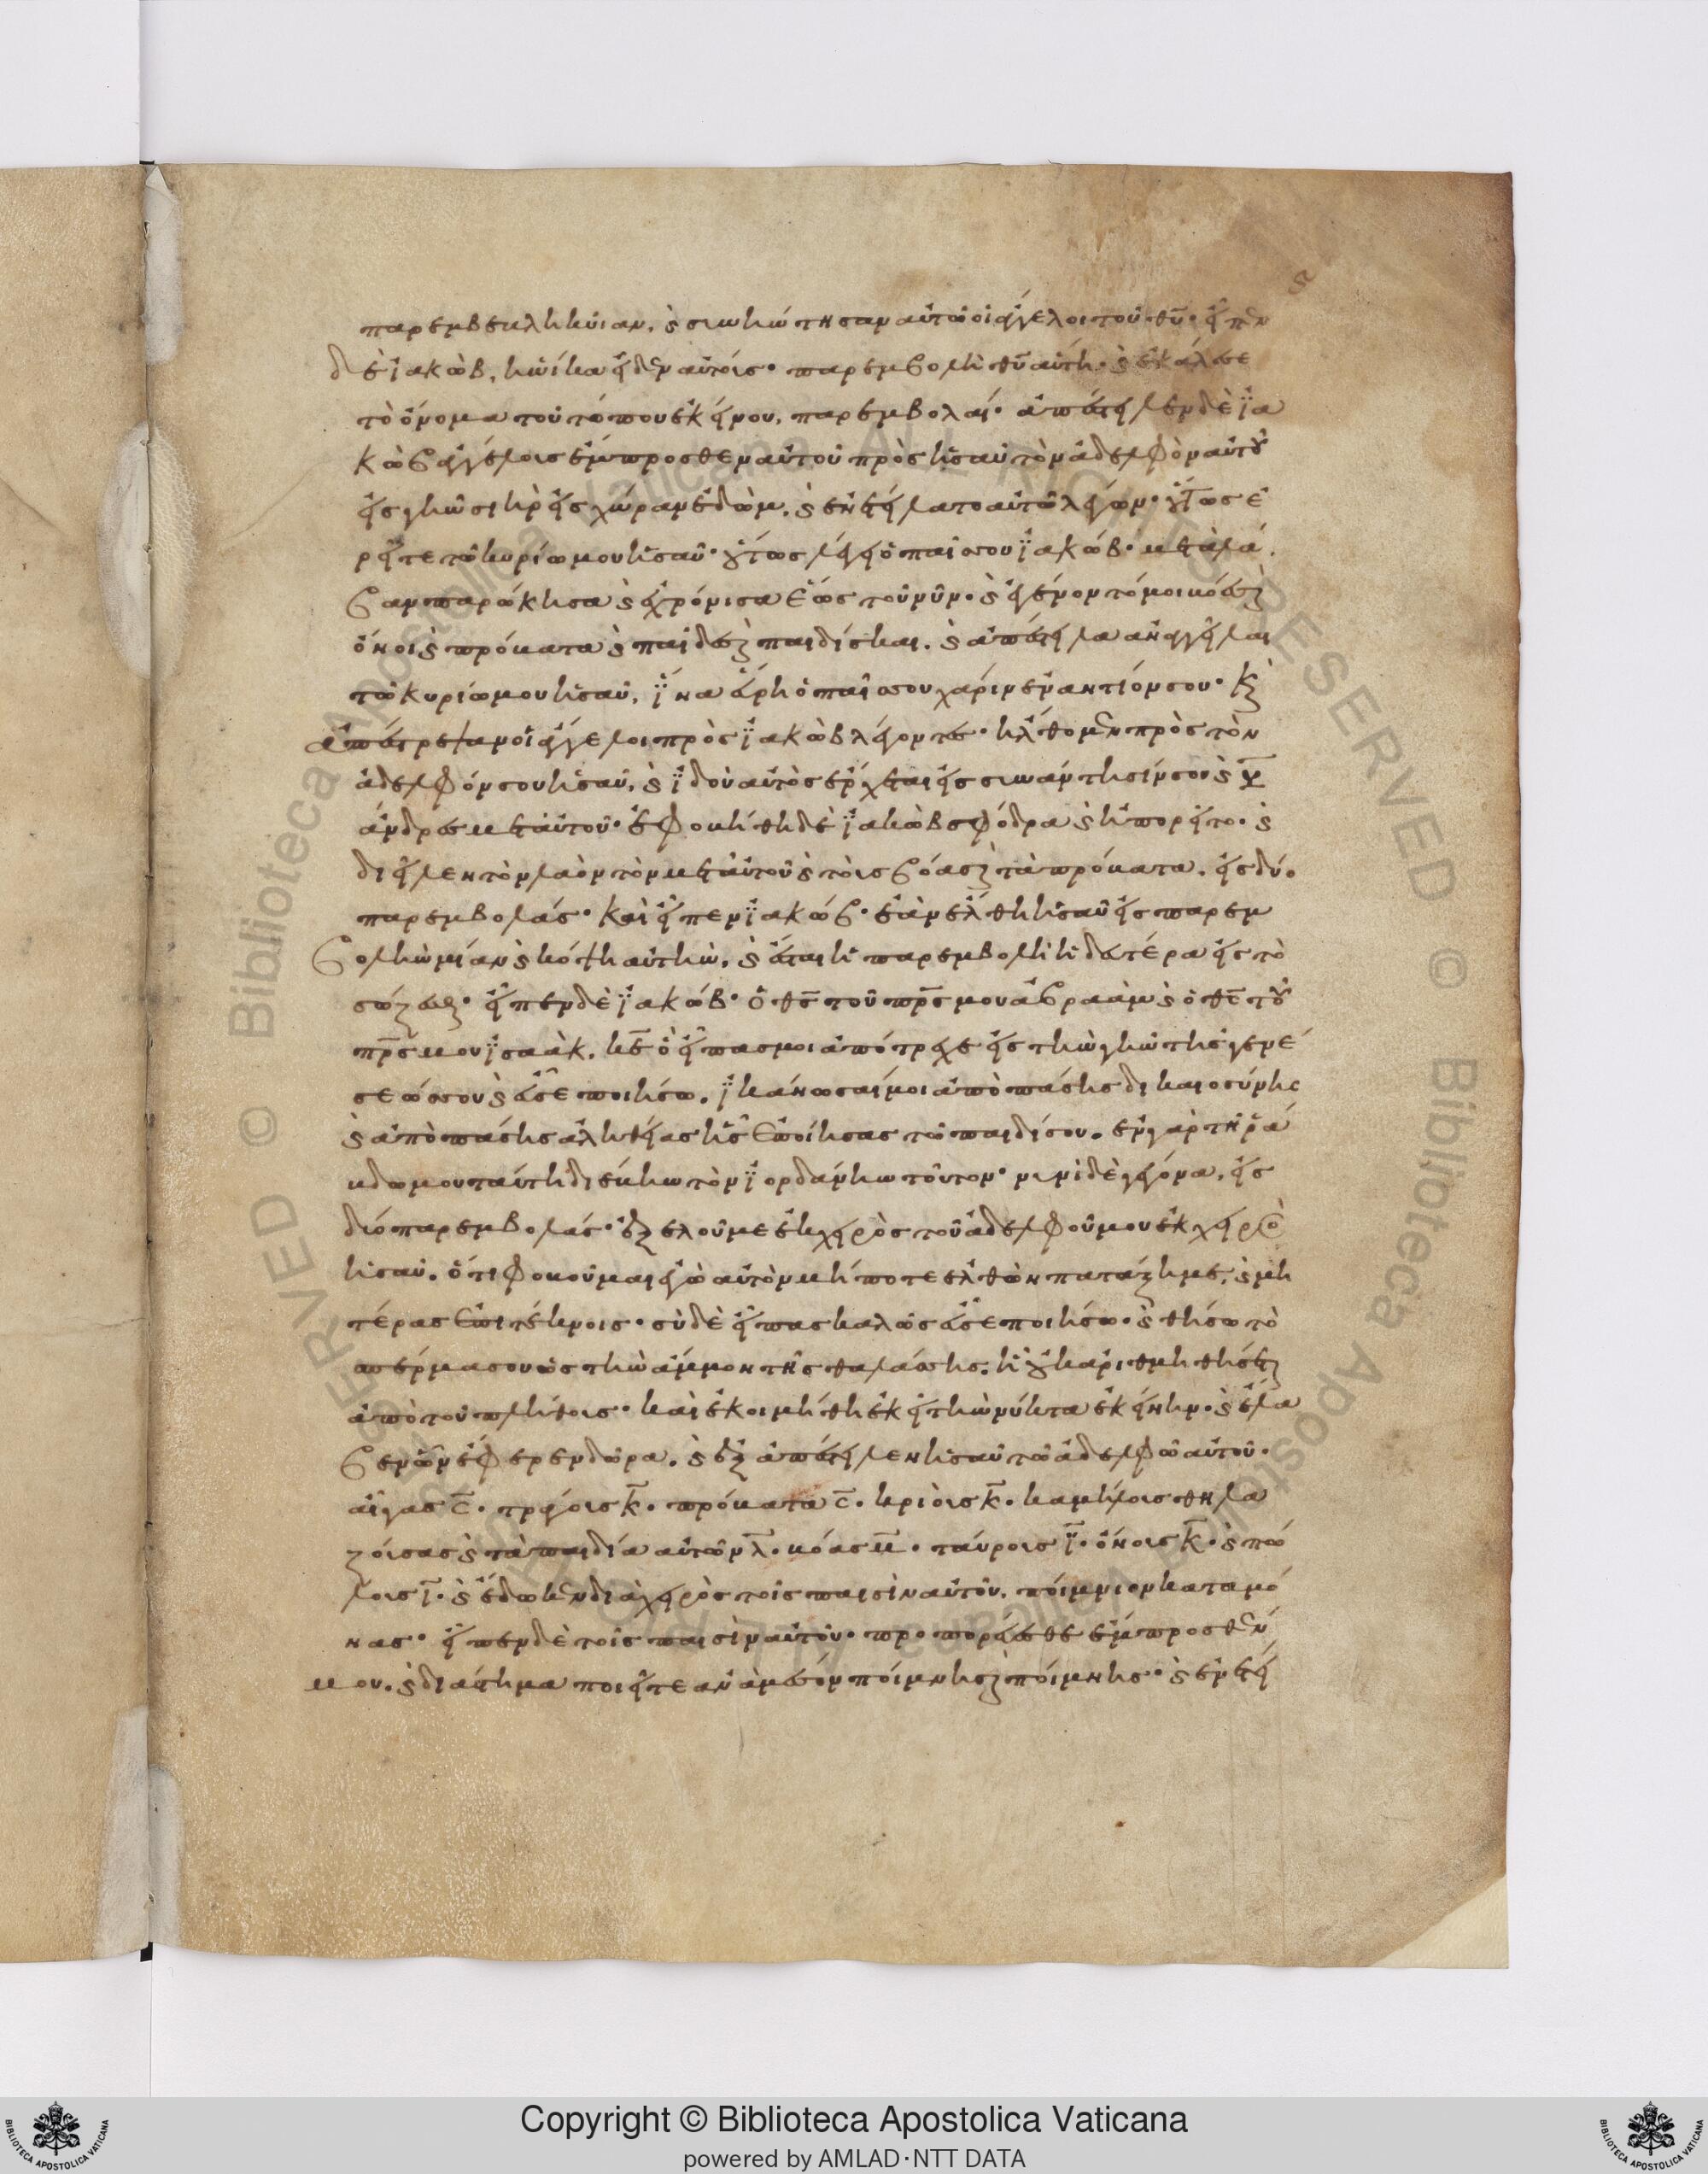 παρεμβεβληκυῖαν. καὶ συνήντησαν αὐτῶ οἱ ἄγγελοι τοῦ θυ̅. εἶπεν
δὲ ϊακὼβ, ἡνίκα εἶδεν αὐτοῖς. παρεμβολὴ θυ̅ αὕτη. καὶ ἐκάλεσε
τὸ ὄνομα τοῦ τόπου ἐκείνου, παρεμβολαί. ἀπέστειλεν δὲ ϊα
κὼβ ἀγγέλοις ἔμπροσθεν αὐτοῦ πρὸς ἡσαῦ τὸν ἀδελφὸν αὐτοῦ
εἰς γῆν σιηρ εἰς χώραν ἐδὼμ. καὶ ἐνετείλατο αὐτῶ λέγων. οὕτως ἐ
ρεῖτε τῶ κυρίω μου ἡσαῦ. οὕτως λέγει ὁ παῖς σου ϊακώβ. μετὰ λά
βαν παρώκησα καὶ ἐχρόνισα ἕως τοῦ νῦν. καὶ ἐγένοντό μοι βόες καὶ
ὄνοι καὶ πρόβατα καὶ παῖδες καὶ παιδίσκαι. καὶ ἀπέστειλα ἀναγγεῖλαι
τῶ κυρίω μου ἡσαῦ, ϊνα εὕρη ὁ παῖς σου χάριν ἐναντίον σου. καὶ
ἀπέστρεψαν οἱ ἄγγελοι πρὸς ϊακὼβ λέγοντες. ἤλθομεν πρὸς τὸν
ἀδελφόν σου ἡσαῦ, καὶ ϊδοὺ αὐτὸς ἔρχεται εἰς συναντησίν σου καὶ υ̅
ἄνδρες μετ αὐτοῦ. ἐφοβήθη δὲ ϊακὼβ σφόδρα καὶ ἠπορεῖτο. καὶ
διεῖλεν τὸν λαὸν τὸν μετ αὐτοῦ καὶ τοὺς βόας καὶ τὰ πρόβατα. εἰς δύο
παρεμβολάς. καὶ εἶπεν ϊακώβ. ἐὰν ἔλθη ἡσαῦ εἰς παρεμ
βολὴν μίαν καὶ κόψη αὐτὴν, καὶ ἔσται ἡ παρεμβολὴ ἡ δευτέρα εἰς τὸ
σώζεσθαι. εἶπεν δὲ ϊακώβ. ὁ θς̅ τοῦ πρ̅ς μου ἀβραὰμ καὶ ὁ θς̅ τοῦ
πρ̅ς μου ϊσαάκ. κε̅ ὁ εἶπας μοι ἀπότρεχε εἰς τὴν γῆν τῆς γενέ
σεώς σου καὶ εὖ σε ποιήσω. ϊκανώσαί μοι ἀπὸ πάσης δικαιοσύνης
καὶ ἀπὸ πάσης ἀληθείας ἧς ἐποίησας τῶ παιδί σου. ἐν γὰρ τῆ ῥά
βδω μου ταύτη διέβην τὸν ϊορδάνην τοῦτον. νυνὶ δὲ γέγονα, εἰς
δύο παρεμβολάς. ἐξελοῦ με ἐκ χειρὸς τοῦ ἀδελφοῦ μου ἐκ χειρὸς
ἡσαῦ. ὅτι φοβοῦμαι ἐγὼ αὐτὸν μήποτε ἐλθὼν πατάξη με, καὶ μη
τέρας ἐπι τέκνοις. σὺ δὲ εἶπας καλῶς εὖ σε ποιήσω. καὶ θήσω τὸ
σπέρμα σου ὡς τὴν ἄμμον τῆς θαλάσσης. ἣ οὐκ ἀριθμηθήσεται
ἀπὸ τοῦ πλήθοις. καὶ ἐκοιμήθη ἐκεῖ τὴν νύκτα ἐκείνην. καὶ ἔλα
βεν ὧν ἔφερεν δῶρα. καὶ ἐξαπέστειλεν ἡσαῦ τῶ ἀδελφῶ αὐτοῦ.
αἶγας ς̅. τράγοις κ̅. πρόβατα ς̅. κριοὶς κ̅. καμήλοις θηλα
ζοίσας καὶ τὰ παιδία αὐτῶν λ̅. βόας μ̅. ταύροις ι̅. ὄνοις κ̅. καὶ πώ
λοις ι̅. καὶ ἔδωκεν διὰ χειρὸς τοῖς παισὶν αὐτοῦ. ποίμνιον κατα μό
νας. εἶπεν δὲ τοῖς παισὶν αὐτοῦ. προπορεύεσθε ἔμπροσθέν
μου. καὶ διάστημα ποιεῖτε ἀνὰ μέσον ποίμνης καὶ ποίμνης. καὶ ἐνετεί
Copyright © Biblioteca Apostolica Vaticana
powered by AMLAD·NTT DATA